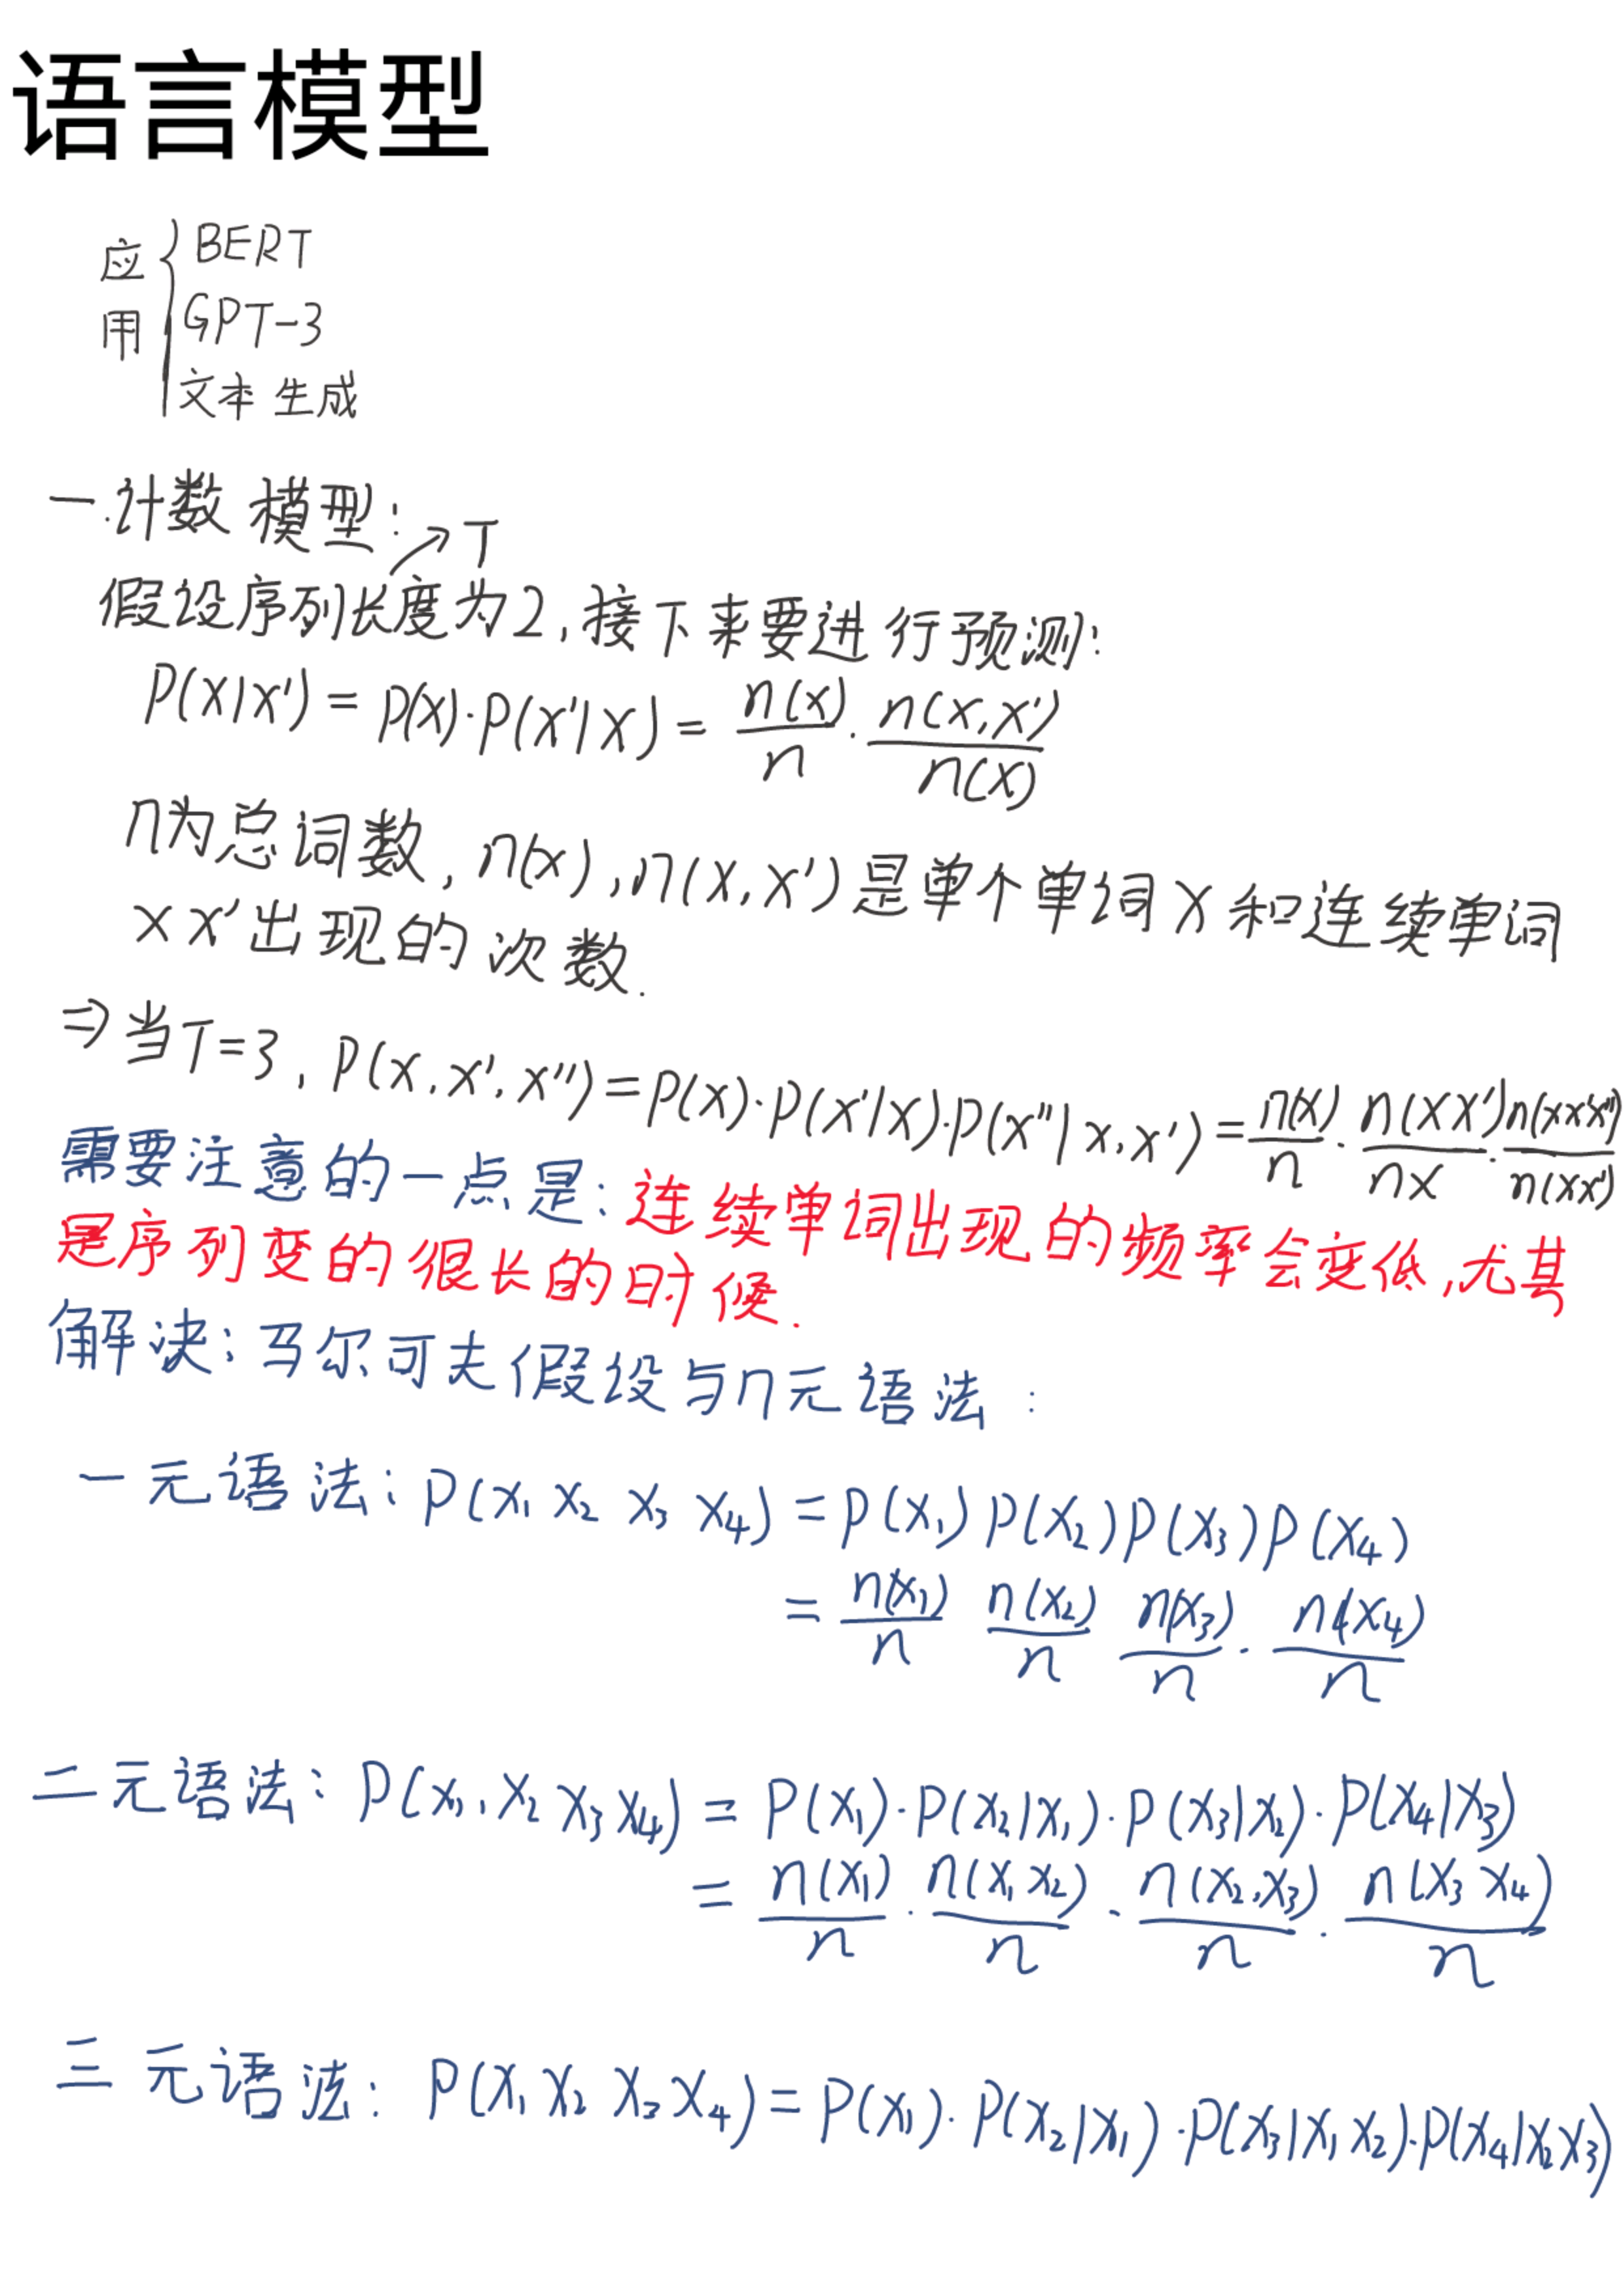 语言模型
应用 { BERT
GPT-3
文本生成
一.计数模型:
→T
假设序列长度为2,接下来要进行预测:
P(x|x') = P(x)·P(x'|x) = n(x)/n · n(x,x')/n(x)
n为总词数, n(x), n(x,x')是单个单词x和连续单词
x x'出现的次数.
⇒当T=3, P(x,x',x'')=P(x)·P(x'|x)·P(x''|x,x')=n(x)/n·n(xx')/nx·n(xx'x'')/n(xx')
需要注意的一点是:连续单词出现的频率会变低,尤其
是序列变的很长的时候.
解决:马尔可夫假设与n元语法:
一元语法: P(x₁ x₂ x₃ x₄) = P(x₁) P(x₂) P(x₃) P(x₄)
= n(x₁)/n n(x₂)/n n(x₃)/n · n(x₄)/n
二元语法: P(x₁,x₂ x₃ x₄) = P(x₁)·P(x₂|x₁)·P(x₃|x₂)·P(x₄|x₃)
= n(x₁)/n · n(x₁ x₂)/n · n(x₂,x₃)/n · n(x₃ x₄)/n
三元语法: P(x₁ x₂ x₃ x₄) = P(x₁)·P(x₂|x₁)·P(x₃|x₁ x₂)·P(x₄|x₂x₃)